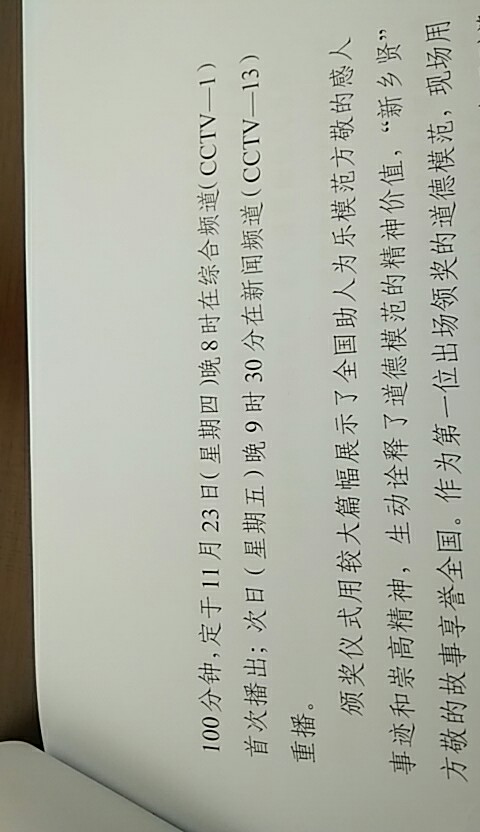 100分钟,定于11月23日(星期四)晚8时在综合频道(CCTV—1)
首次播出；次日(星期五)晚9时30分在新闻频道(CCTV—13)
重播。
颁奖仪式用较大篇幅展示了全国助人为乐模范方敬的感人
事迹和崇高精神，生动诠释了道德模范的精神价值，“新乡贤”
方敬的故事享誉全国。作为第一位出场领奖的道德模范，现场用